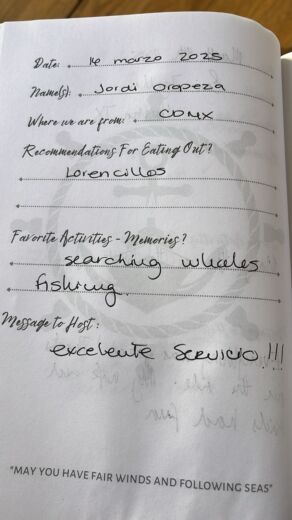 Date: 14 marzo 2025
Name(s): Jordi Oropeza
Where we are from: CDMX
Recommendations For Eating Out?
Lorencillos
Favorite Activities - Memories?
searching whales
fishing
Message to Host:
excelente servicio!!!
"MAY YOU HAVE FAIR WINDS AND FOLLOWING SEAS"